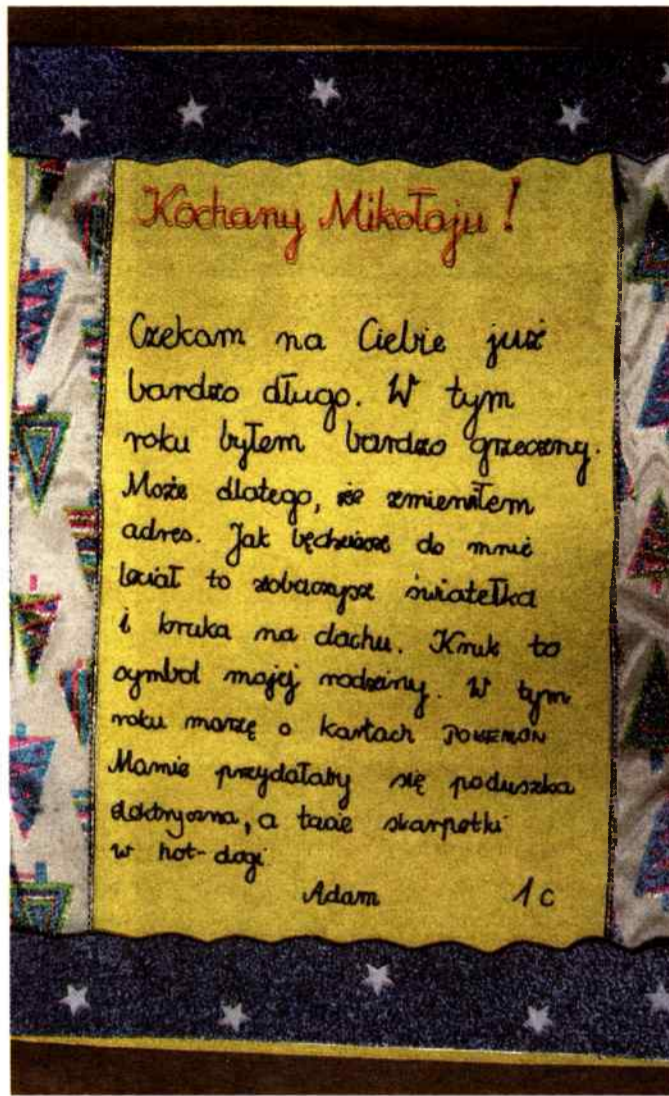 Kochany Mikołaju!
Czekam na Ciebie już
bardzo długo. W tym
roku byłem bardzo grzeczny.
Może dlatego, że zmieniłem
adres. Jak będziesz do mnie
leciał to zobaczysz światełka
i kruka na dachu. Kruk to
symbol mojej rodziny. W tym
roku marzę o kartach POKEMON
Mamie przydałaby się poduszka
elektryczna, a tacie skarpetki
w hot-dogi
Adam 1c